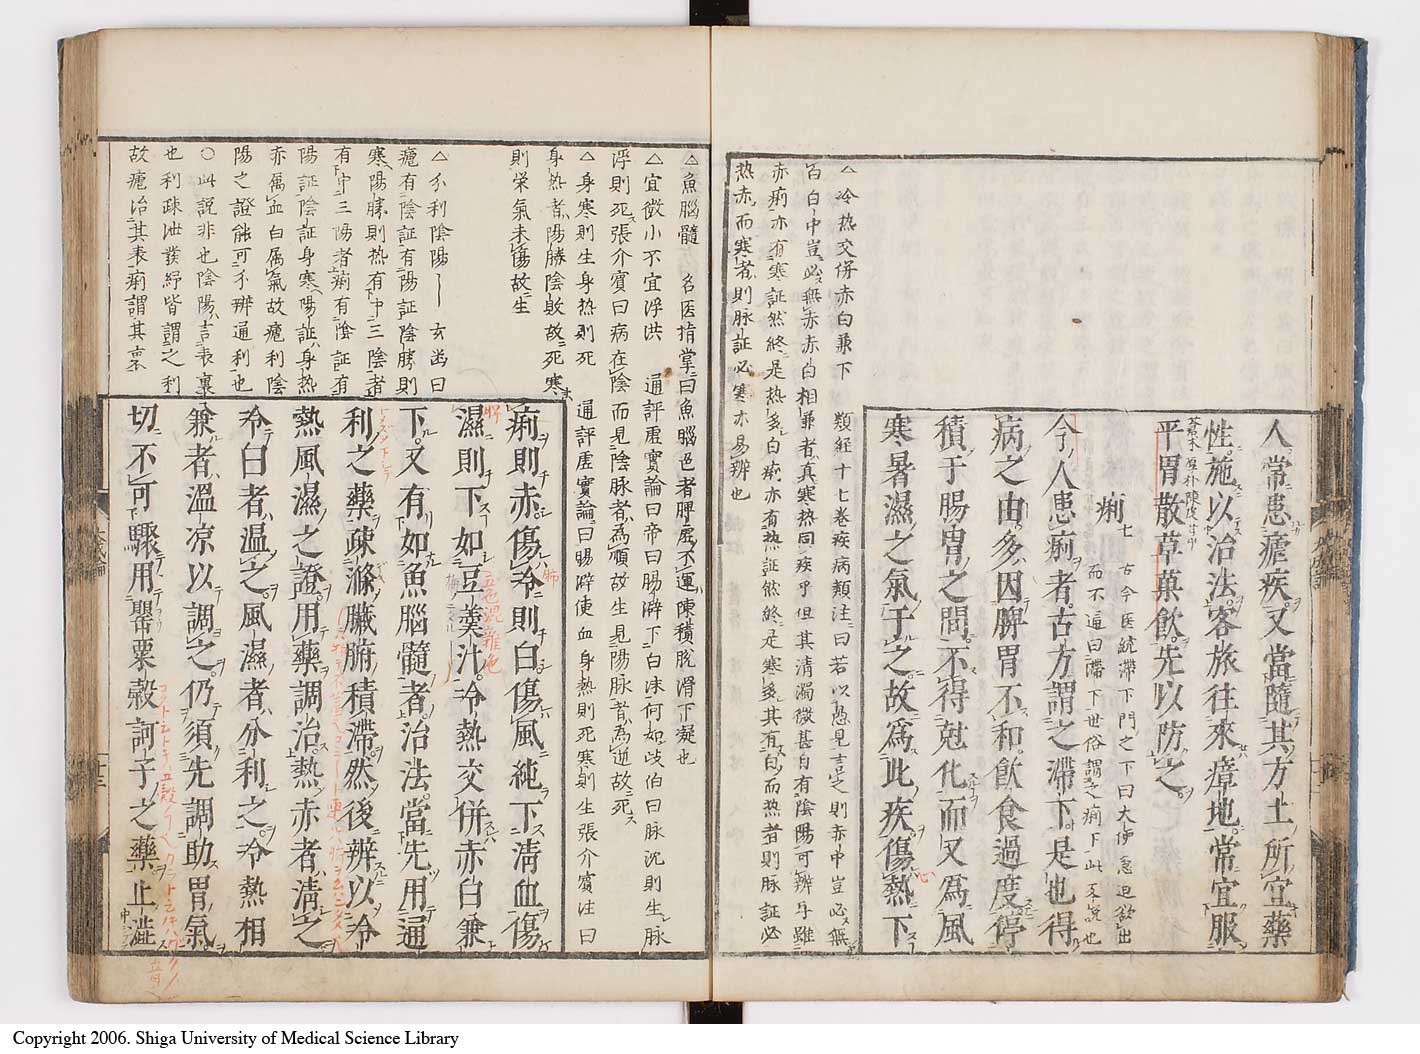 人常患瘧疾又當隨其方土所宜藥
性施以治法客旅往來瘴地常宜服
平胃散草菓飲先以防之
蒼朮厚朴陳皮甘
痢七
古今医統滯下門之下曰大便急迫欲出
而不逼曰滯下世俗謂之痢下此等説也
今人患痢者古方謂之滯下是也得
病之由多因脾胃不和飲食過度停
積于腸胃之間不得尅化而又爲風
寒暑濕之氣于之故爲此疾傷熱下
△冷热交併赤白兼下
類經十七卷疾病類注曰若以愚見言之則赤中豈必無
白白中豈必無赤赤白相兼者真寒热同疾乎但其清濁微甚自有陰陽可辨乎雖
赤痢亦有寒証然終是热多白痢亦有热証然終是寒多其有白而热者則脉証必
热赤而寒者則脉証必寒亦易辨也
△魚腦髓
名医指掌曰魚腦色者脾虚不運陳積脱滑下凝也
△宜微小不宜浮洪
通評虚實論曰帝曰腸澼下白沫何如岐伯曰脉沈則生脉
浮則死張介賓曰病在陰而見陰脉者為順故生見陽脉者為逆故死
△身寒則生身热則死
通評虚實論曰腸澼使血身熱則死寒則生張介賓注曰
身热者陽勝陰敗故死寒
則栄氣未傷故生
△分利陰陽——玄函曰
瘧有陰証有陽証陰勝則
寒陽勝則热有中三陰者
有中三陽者痢有陰証有
陽証陰証身寒陽証身热
赤属血白属氣故瘧利陰
陽之證能可不辨通利也
○此説非也陰陽言表裏
也利疎泄發紓皆謂之利
故瘧治其表痢謂其裏
痢則赤傷冷則白傷風純下清血傷
濕則下如豆羹汁冷熱交併赤白兼
下又有如魚腦髓者治法當先用通
利之藥疎滌臟腑積滯然後辨以冷
熱風濕之證用藥調治熱赤者清之
冷白者温之風濕者分利之冷熱相
兼者温凉以調之仍須先調助胃氣
切不可驟用罌粟殼訶子之藥止澁
五色混雑色
Copyright 2006. Shiga University of Medical Science Library